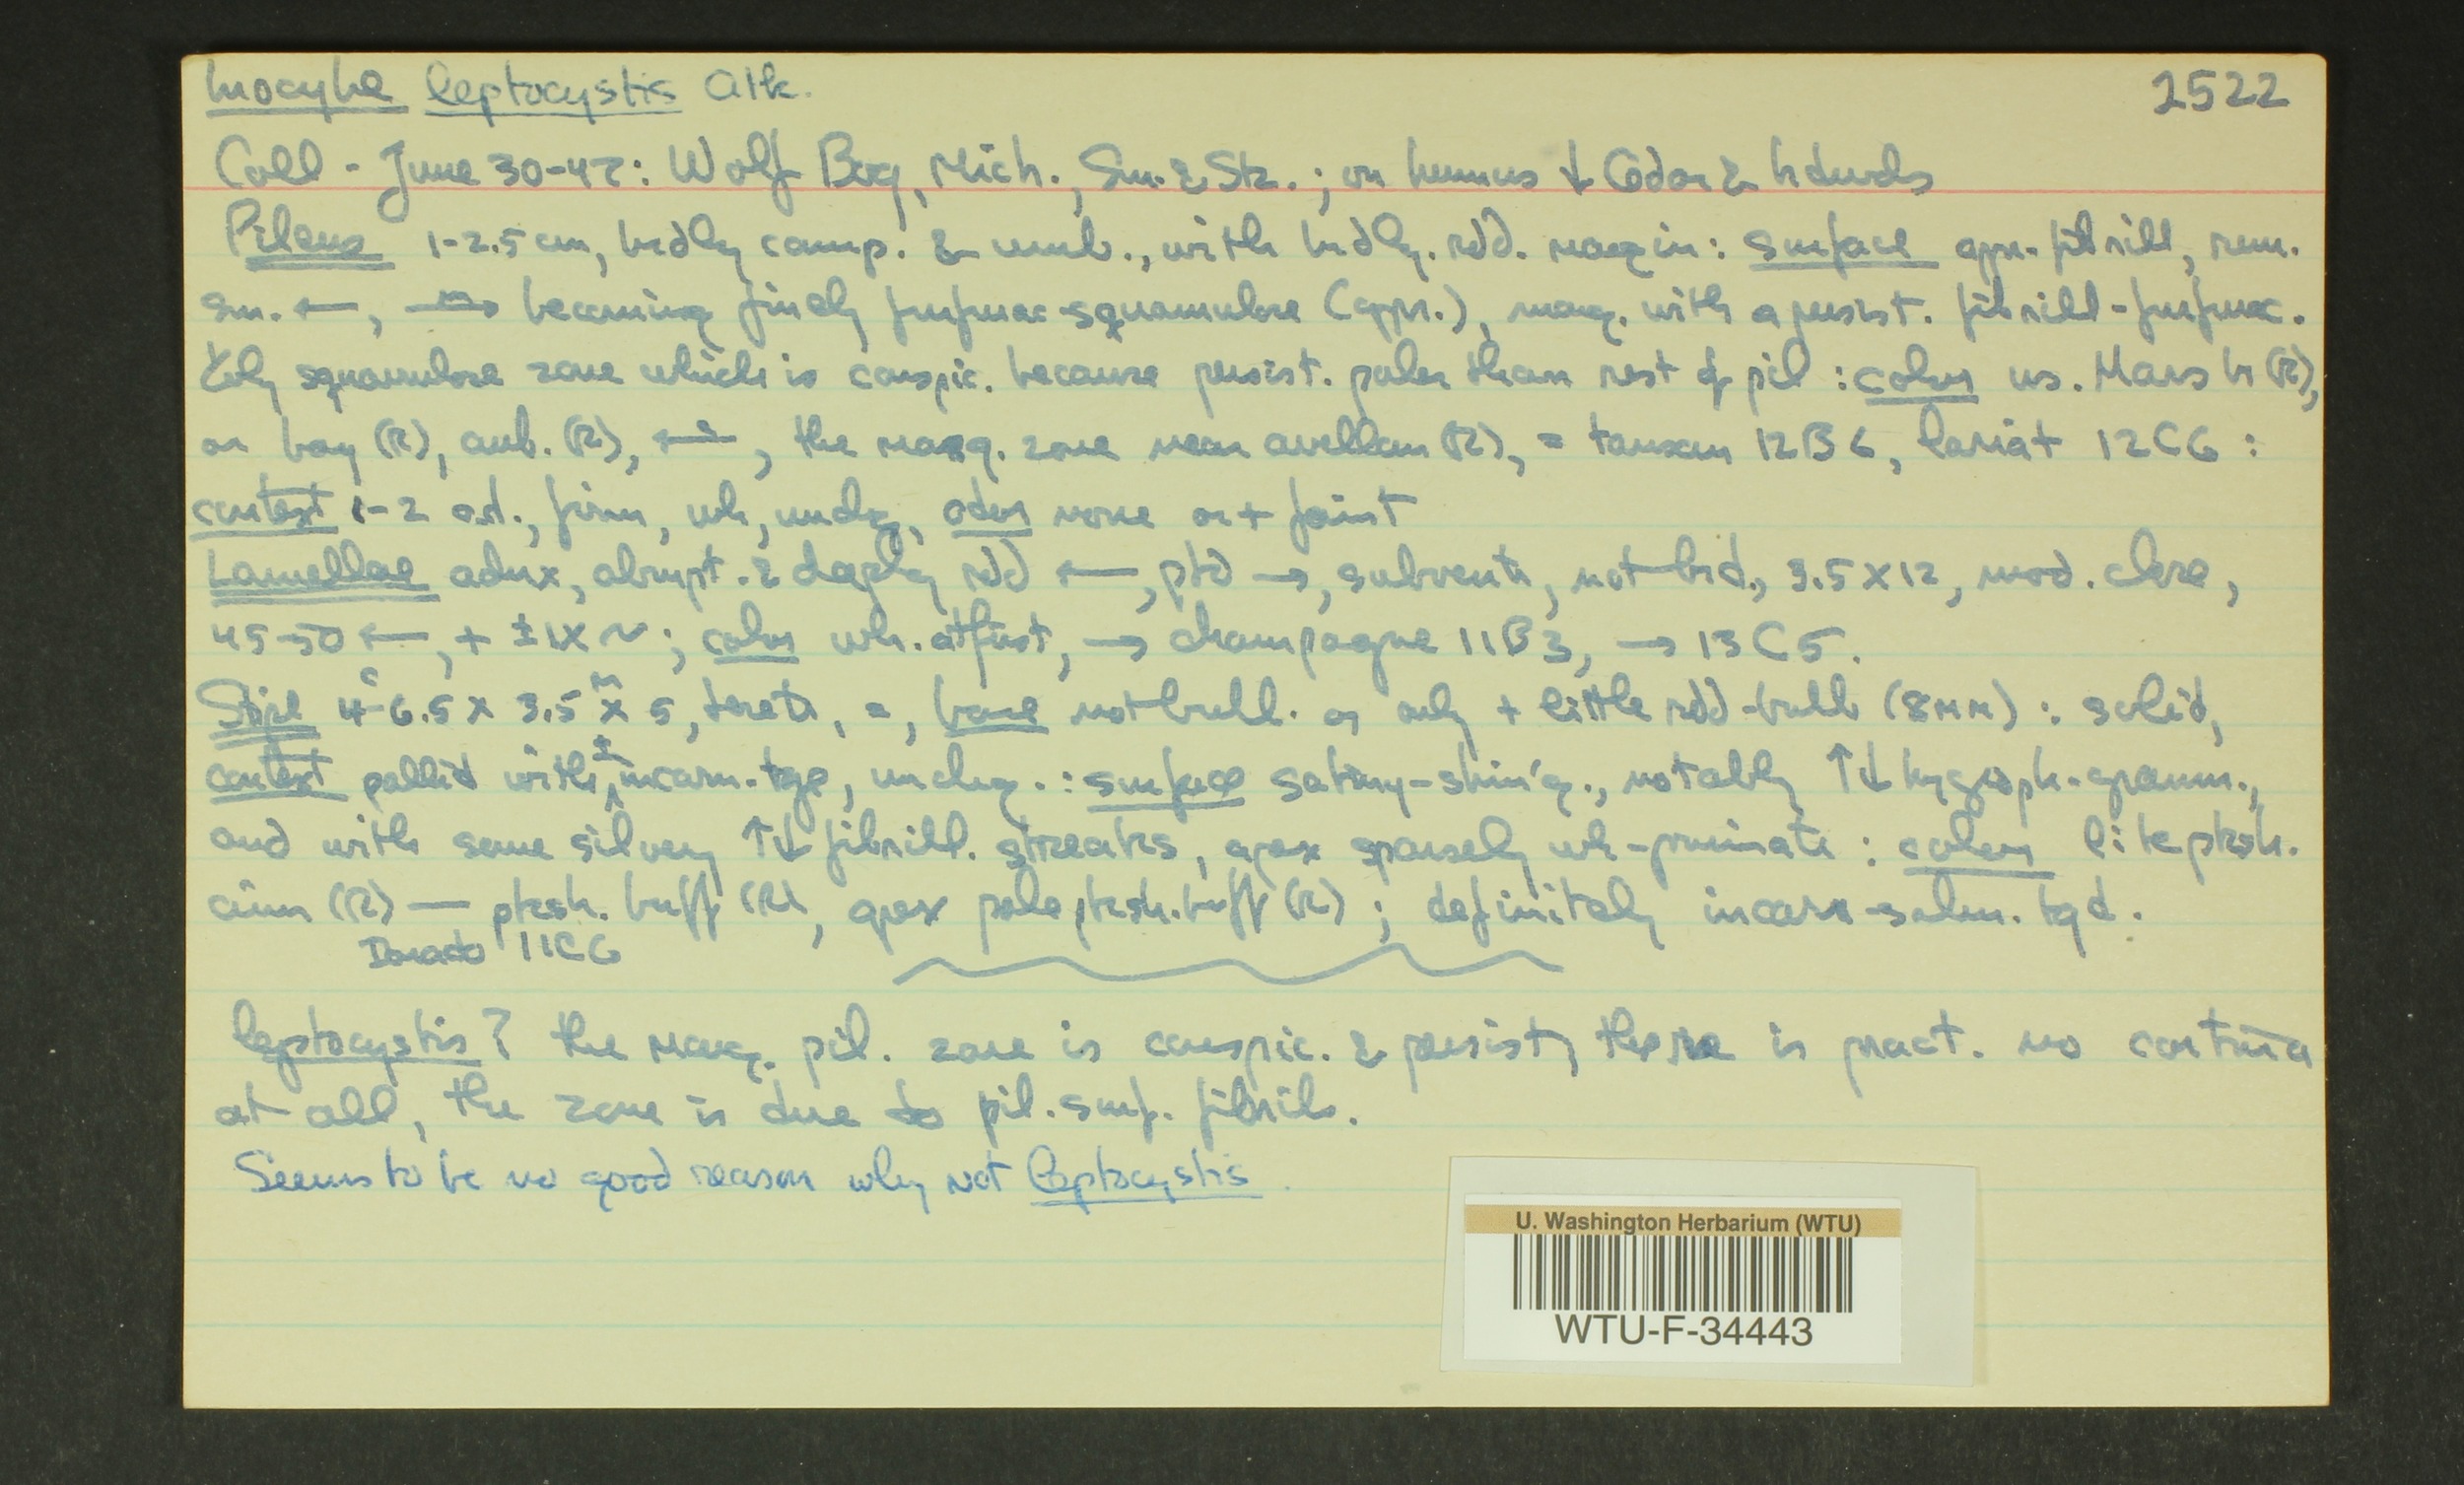 Inocybe leptocystis Atk. 2522
Coll - June 30-47: Wolf Bog, Mich., Sm. & Stz.; on humus ↓ Cedar & hdwds
Pileus 1-2.5 cm, brdly camp. & umb., with brdly. rdd. margin: surface appr. fibrill, rem.
sm. ←, → becoming finely furfurac-squamulose (appr.), marg. with a persist. fibrill-furfurac.
squamulose zone which is conspic. because persist. paler than rest of pil: color us. Mars br (R),
or bay (R), aub. (R), ←, the marg. zone near avellan (R), = 12B6, lariat 12C6:
context 1-2 a.d., firm, wh, unchg, odor none or + faint
Lamellae adnx, abrupt. & deeply rdd ←, ptd →, subventr, not brd., 3.5 x 12, mod. close,
45-50 ←, + ± 1X ~; color wh. at first, → champagne 11B3, → 13C5.
Stipe 4-6.5 c x 3.5 m x 5, terete, =, base not bulb. or only + little rdd-bulb (8mm): solid,
context pallid with ± incarn. tge, unchg.: surface satiny-shin'g., notably ↑↓ hygroph-,
and with some silvery ↑↓ fibrill. streaks, apex sparsely wh-pruinate: color lite pksh.
cinn (R) — pksh. buff (R), apex pale pksh. buff (R); definitely incarn-salm. tgd.
Dorado 11C6
leptocystis? the marg. pil. zone is conspic. & persist, there is pract. no cortina
at all, the zone is due to pil. surf. fibrils.
Seems to be no good reason why not leptocystis.
U. Washington Herbarium (WTU)
WTU-F-34443